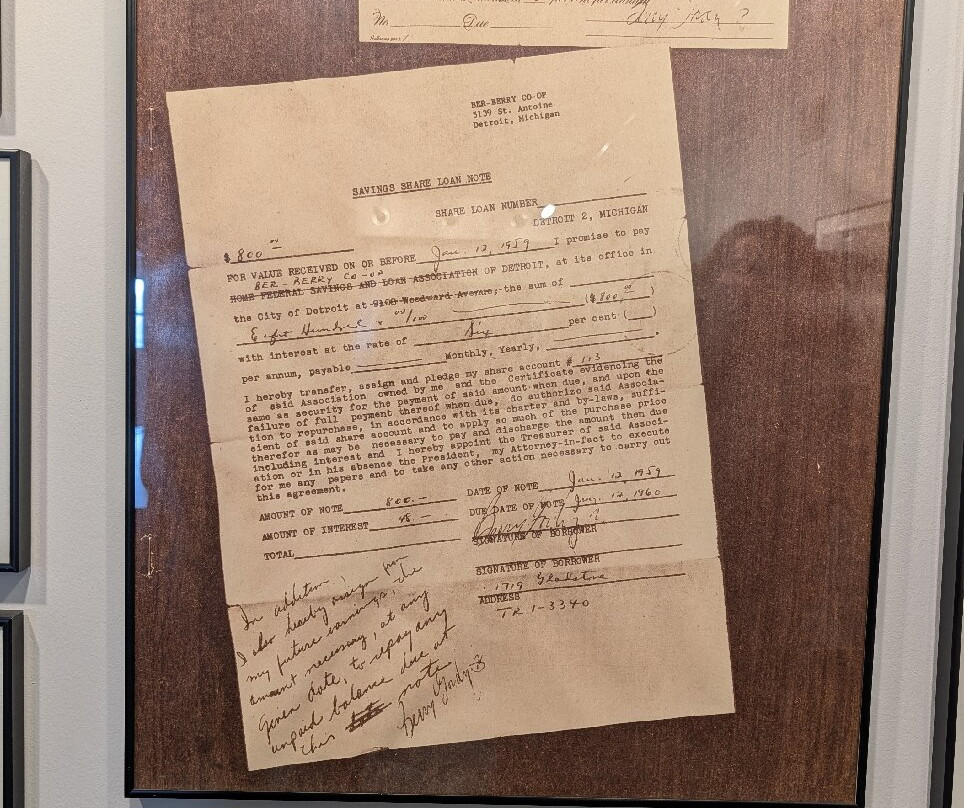 Due
BER-BERRY CO-OP
5139 St. Antoine
Detroit, Michigan
SAVINGS SHARE LOAN NOTE
SHARE LOAN NUMBER
DETROIT 2, MICHIGAN
$ 800 00
FOR VALUE RECEIVED ON OR BEFORE Jan. 12, 1959 I promise to pay
BER-BERRY CO-OP
HOME FEDERAL SAVINGS AND LOAN ASSOCIATION OF DETROIT, at its office in
the City of Detroit at 9108 Woodward Avenue, the sum of
Eight Hundred x 00/100 ($800.00)
with interest at the rate of Six per cent ( )
per annum, payable Monthly, Yearly,
I hereby transfer, assign and pledge my share account # 103 the
of said Association owned by me and the Certificate evidencing the
same as security for the payment of said amount when due, and upon the
failure of full payment thereof when due, do authorize said Associa-
tion to repurchase, in accordance with its charter and by-laws, suffi-
cient of said share account and to apply so much of the purchase price
therefor as may be necessary to pay and discharge the amount then due
including interest and I hereby appoint the Treasurer of said Associ-
ation or in his absence the President, my Attorney-in-fact to execute
for me any papers and to take any other action necessary to carry out
this agreement.
AMOUNT OF NOTE 800.—
DATE OF NOTE Jan. 12 1959
AMOUNT OF INTEREST 48.—
DUE DATE OF NOTE Jan. 12, 1960
TOTAL
Berry Gordy Jr
SIGNATURE OF BORROWER
SIGNATURE OF BORROWER
1719 Gladstone
ADDRESS
TR 1-3340
In addition
I also hereby assign
my future earnings, the
amount necessary, at any
given date, to repay any
unpaid balance due at
this note
Berry Gordy Jr